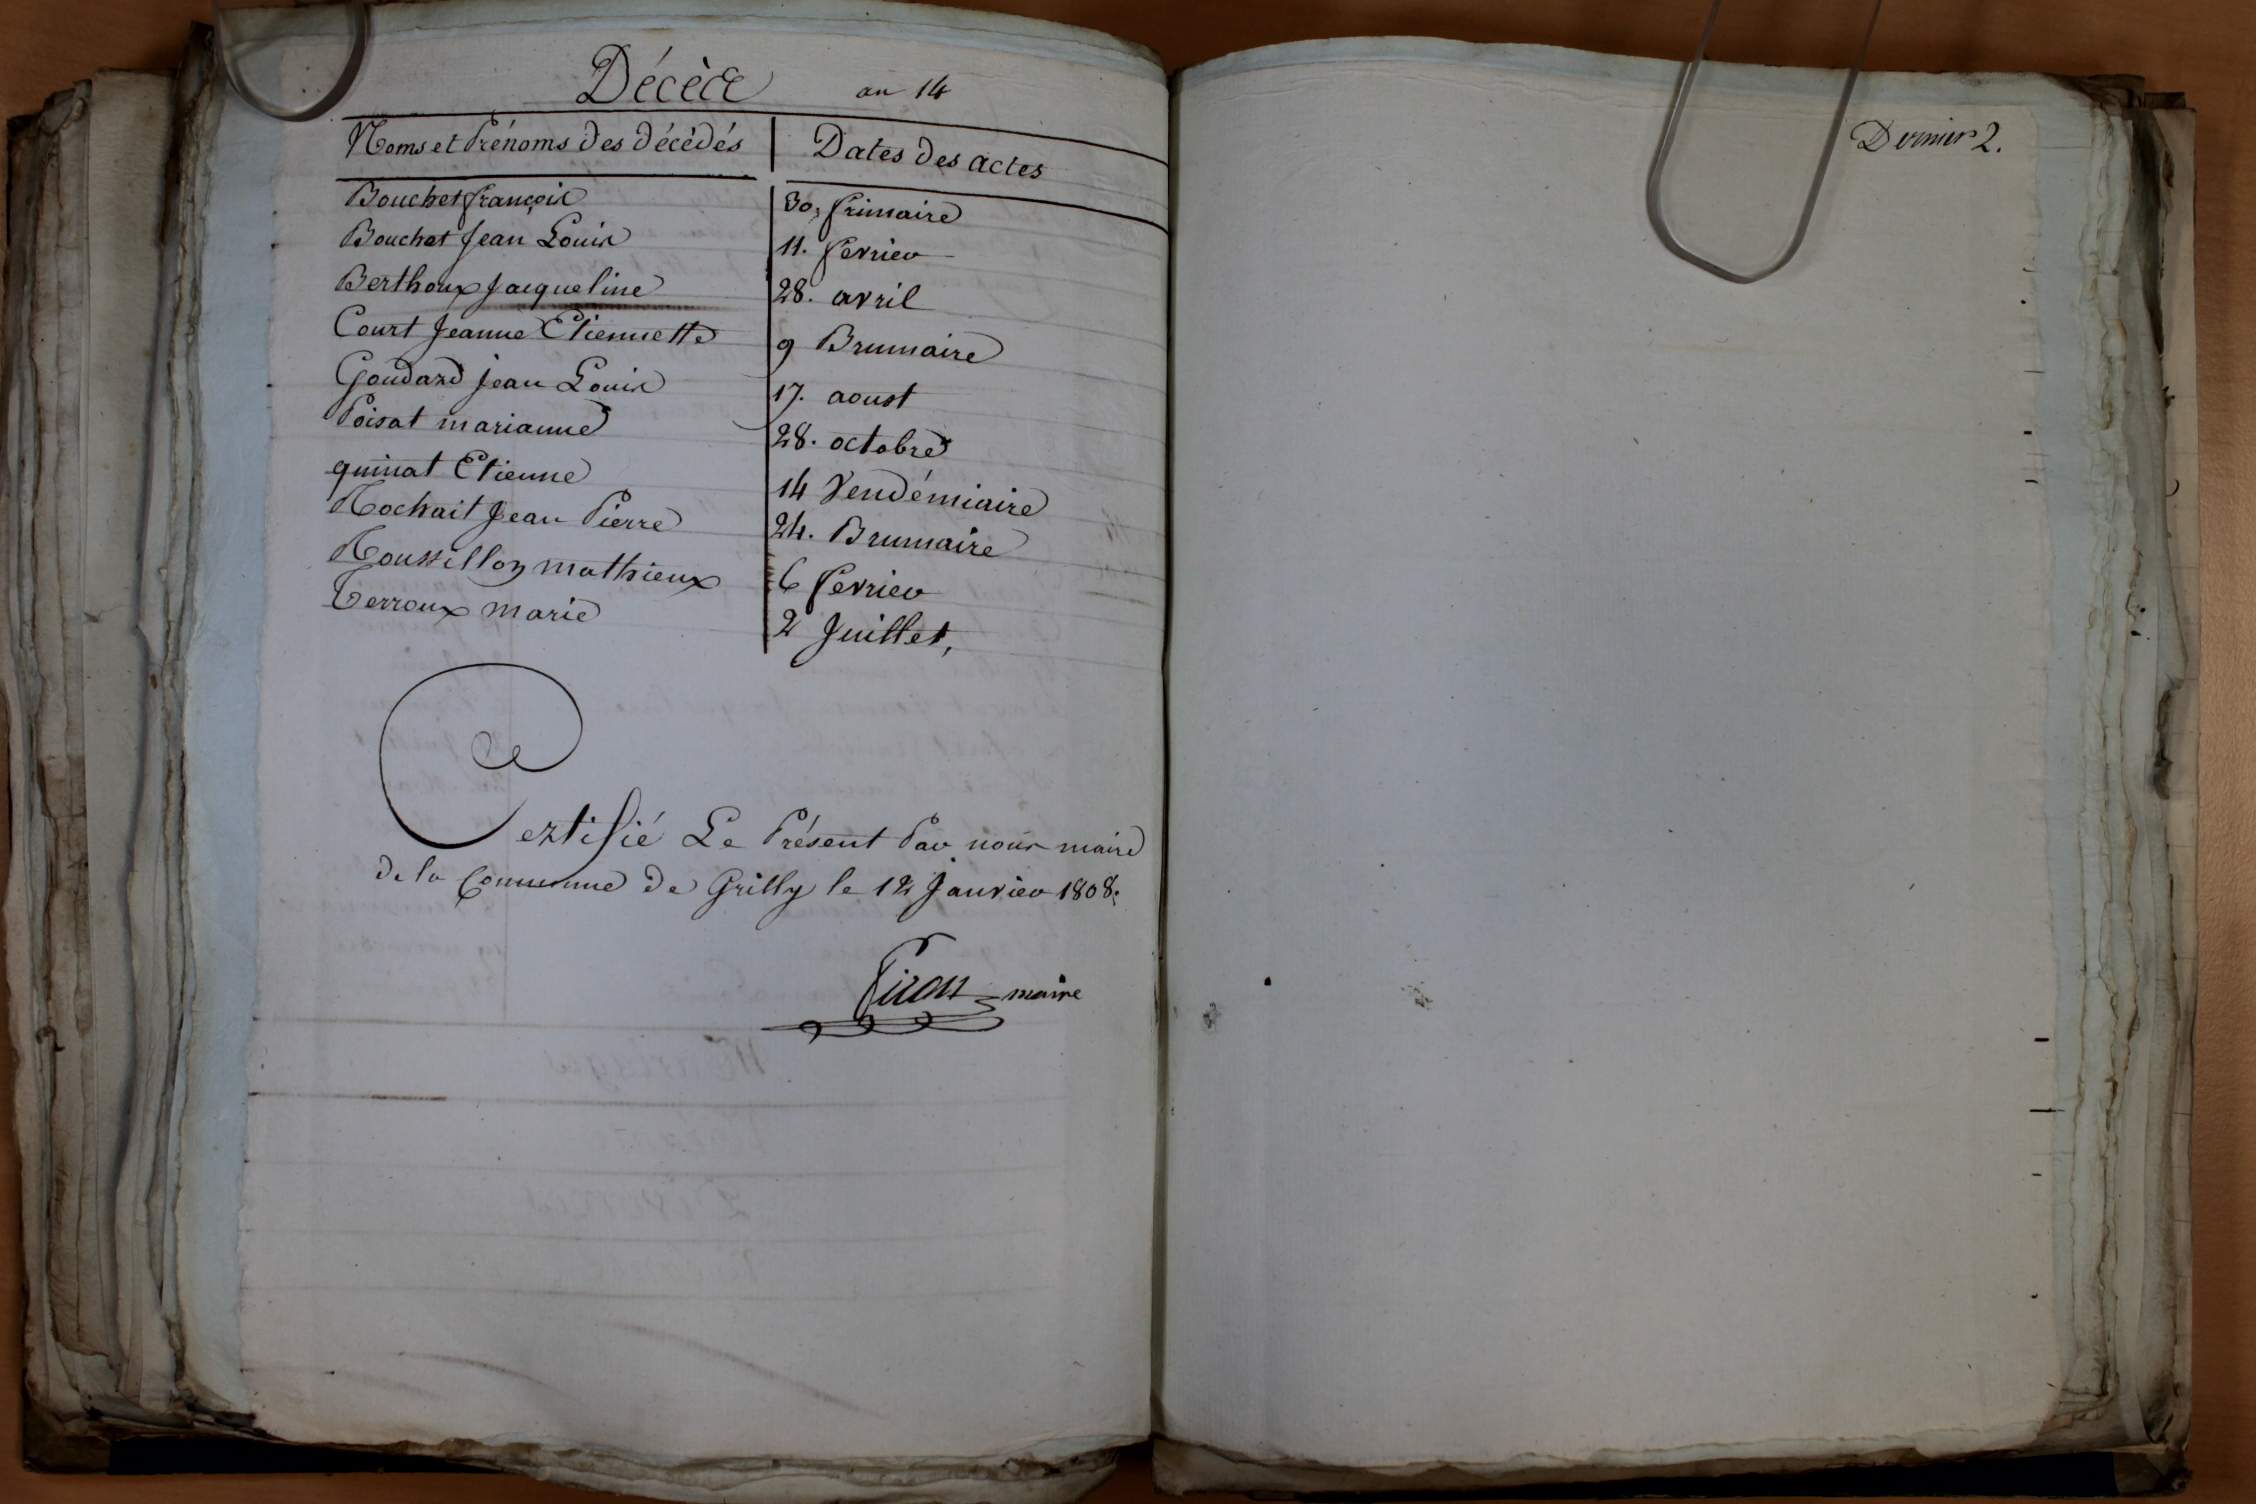 Décès an 14
Noms et Prénoms des décédés Dates des actes
Bouchet françois 30, frimaire
Bouchet Jean Louis 11. fevrier
Berthoux Jacqueline 28. avril
Court Jeanne Etiennette 9 Brumaire
Goudard Jean Louis 17. aoust
Poisat marianne 28. octobre
quinat Etienne 14 Vendémiaire
Rochait Jean Pierre 24. Brumaire
Roussillon mathieux 6 fevrier
Terroux marie 2 Juillet,
Certifié Le Présent Par nous maire
de la Commune de Grilly le 12 Janvier 1808.
maire
Dernier 2.